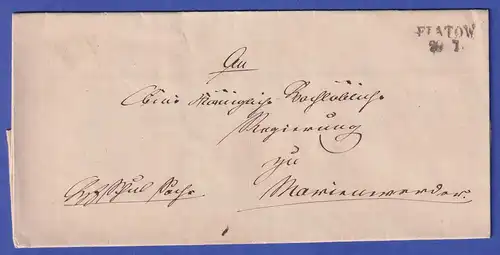 FLATOW
29 7.
An
Eine Königliche Hochlöbliche
Regierung
zu
Marienwerder.
Schul Sache